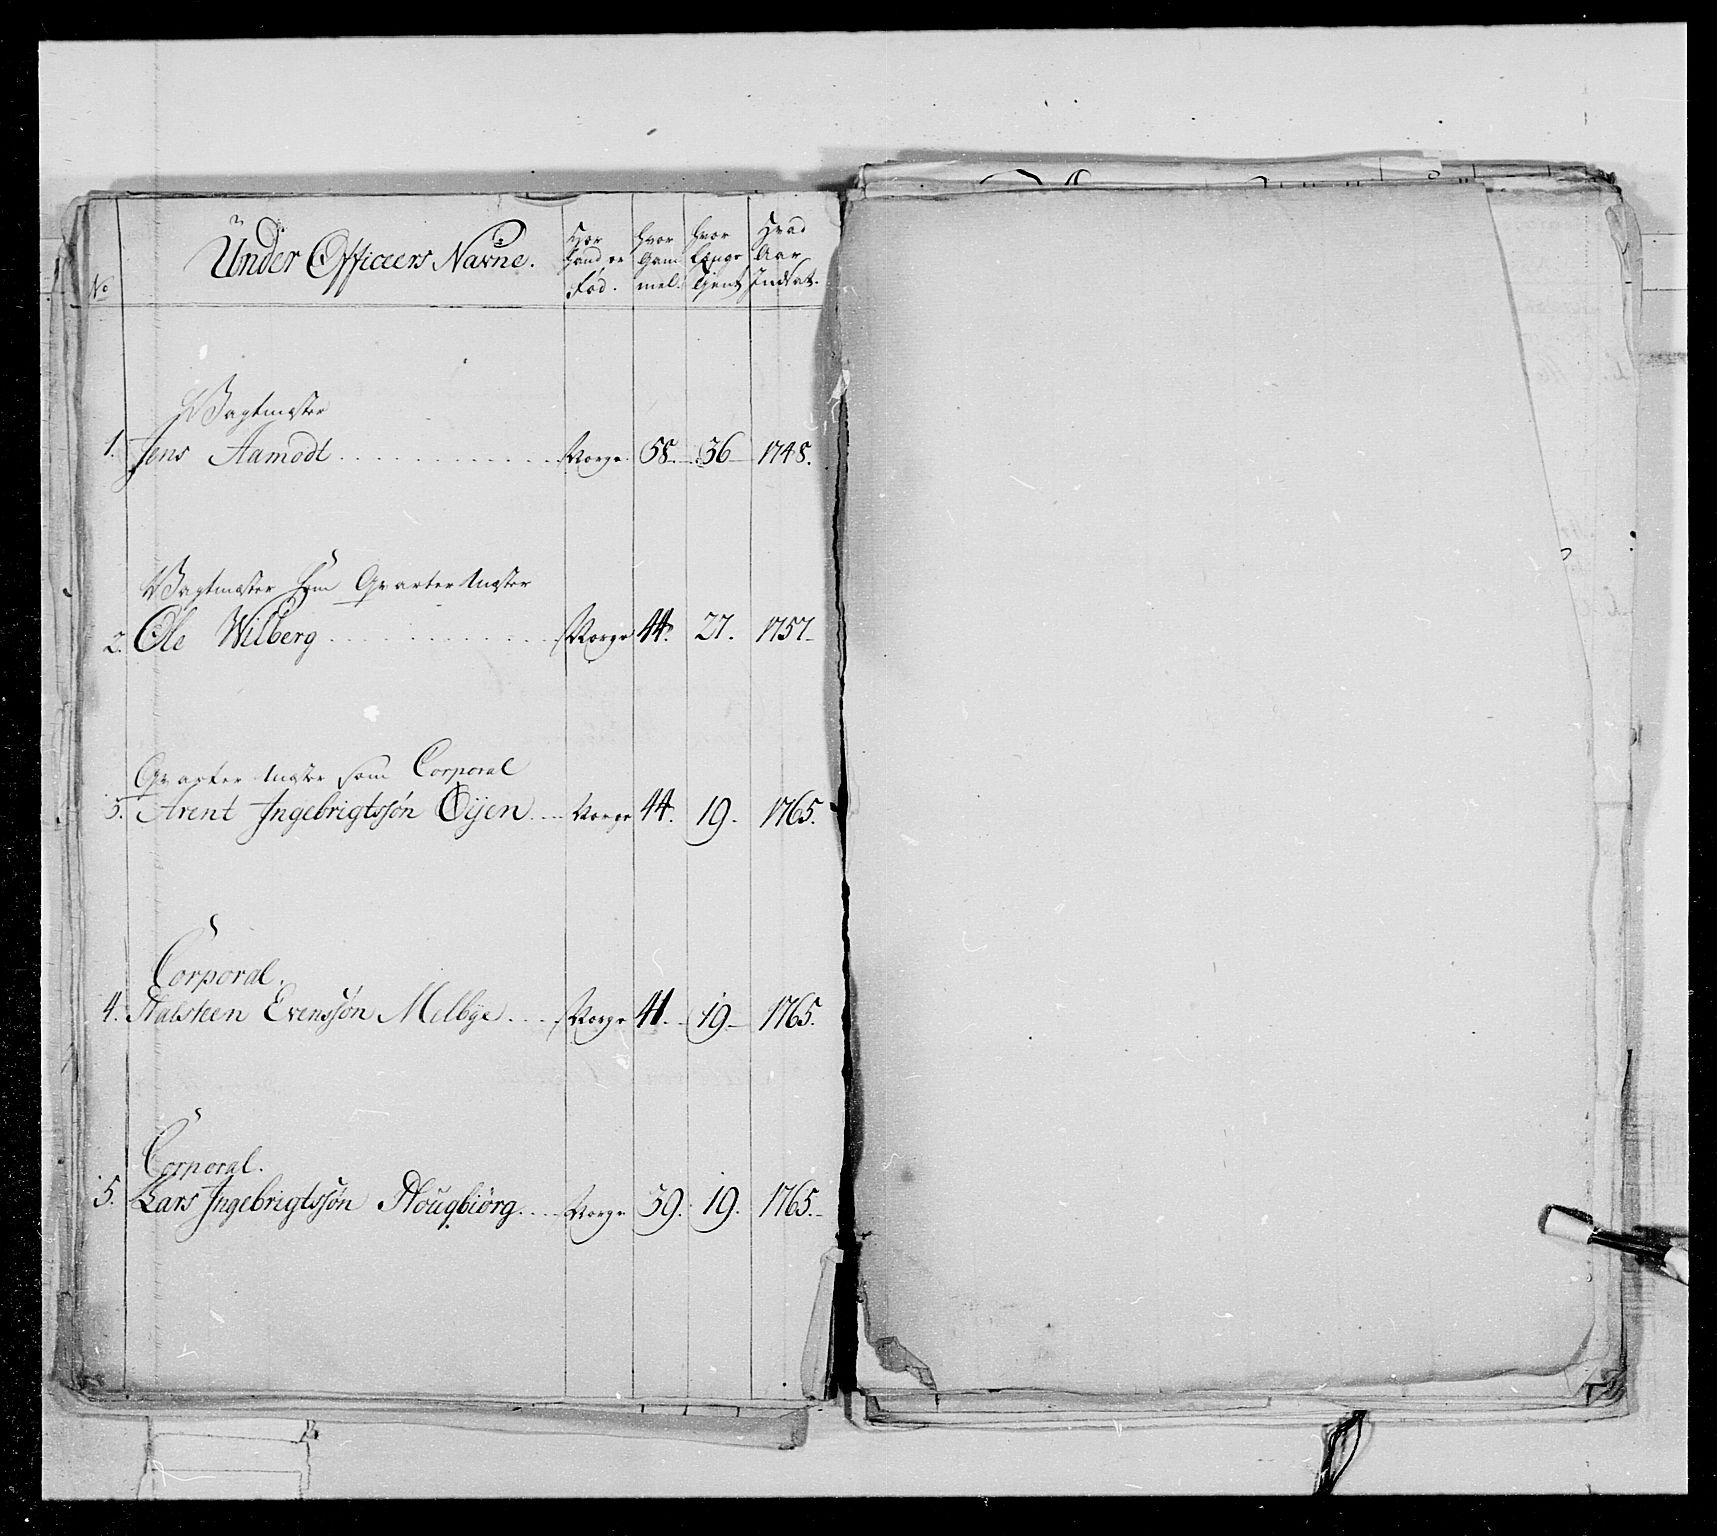 No Under Officeers Navne. Hvor Hand er Fød. hvor Gammel. hvor Længe Tient Hvad Aar Indsat.
Wagtmester
1. Jens Aamodt Norge 58. 36 1748.
Wagtmester som Qvarteermester
2. Ole Wilberg Norge 44. 27. 1757
Qvarteermester som Corporal
3. Arent Ingebrigtssøn Öÿen Norge 44. 19. 1765.
Corporal.
4. Halsteen Evenssøn Melbye Norge 41. 19 1765.
Corporal.
5. Lars Ingebrigtssøn Hougbiørg Norge 39. 19. 1765.